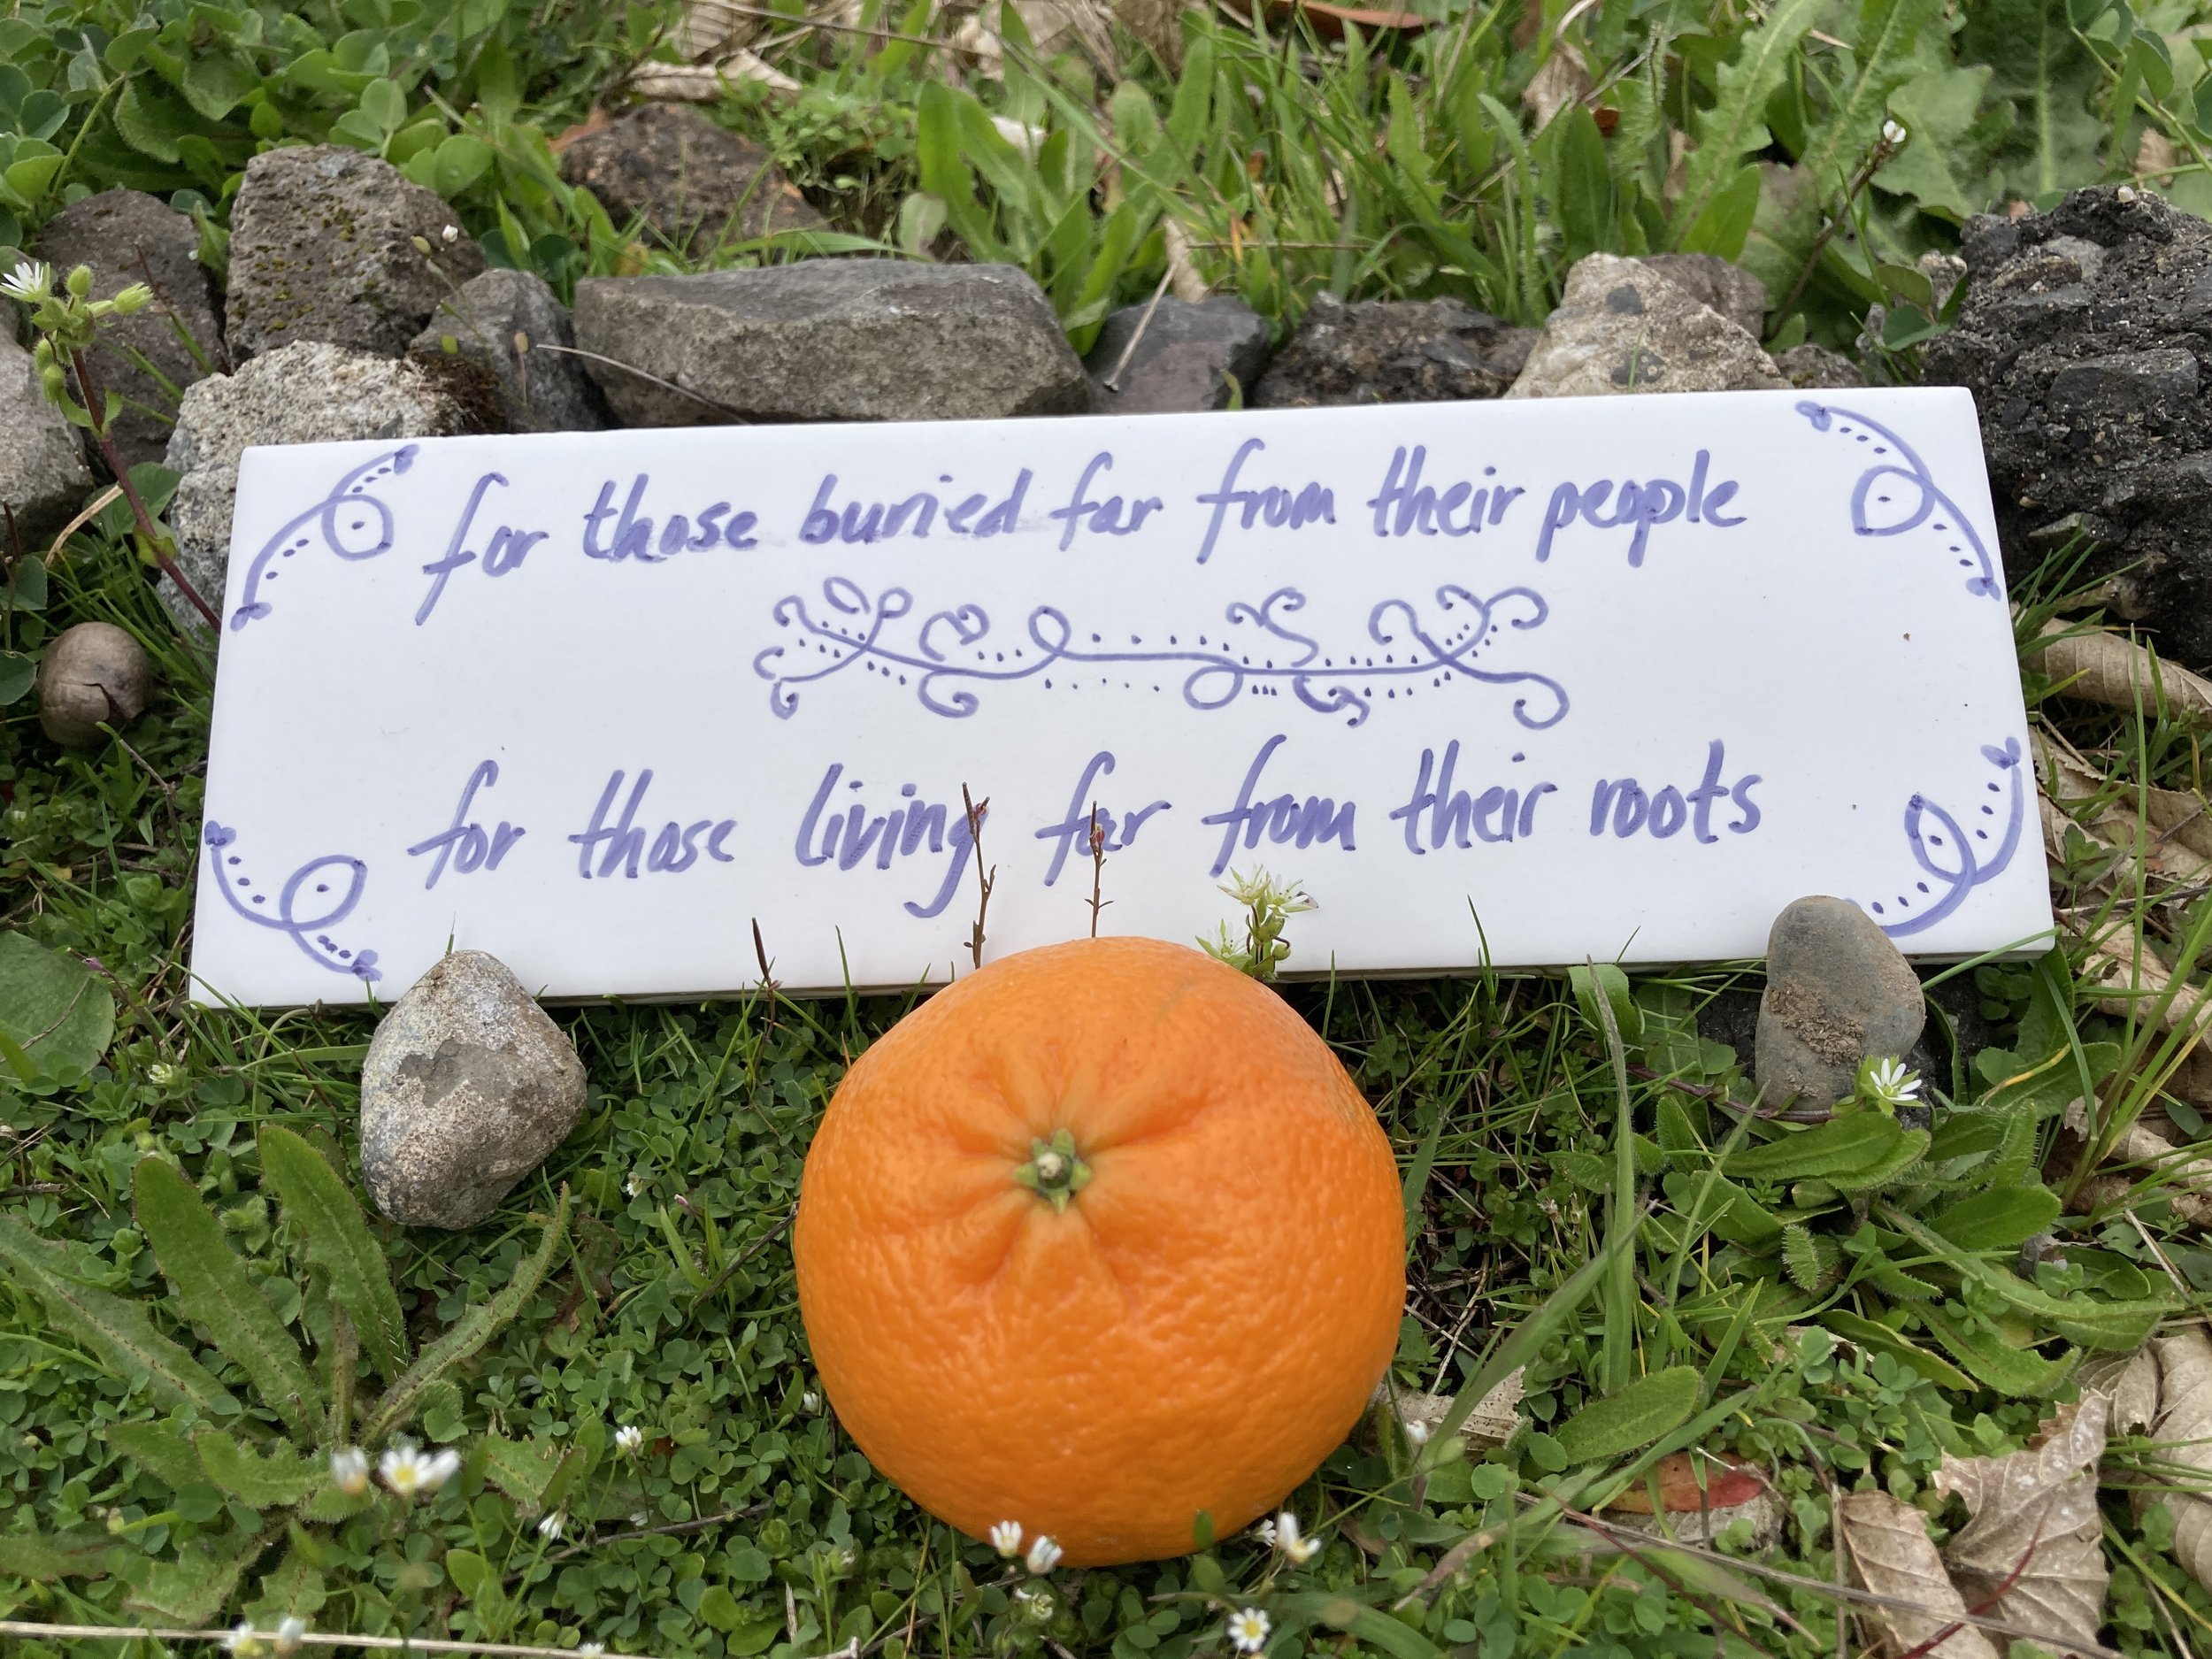 for those buried far from their people
for those living far from their roots